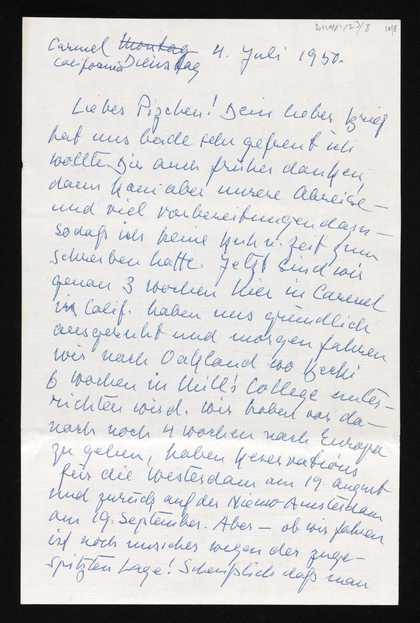 Carmel Montag 4. Juli 1950.
California Dienstag
Liebes Pizchen! Dein lieber Brief
hat uns beide sehr gefreut ich
wollte Dir auch früher danken,
dann kam aber unsere Abreise –
und viel vorbereitungen dazu –
sodaß ich keine Ruh u. Zeit zum
schreiben hatte. Jetzt sind wir
genau 3 wochen hier in Carmel
in Calif. haben uns gründlich
ausgeruht und morgen fahren
wir nach Oakland wo
6 wochen in Mill's College unter-
richten wird. wir haben vor da-
nach noch 4 wochen nach Europa
zu gehen, haben Reservations
für die Westerdam am 19. august
und zurück auf der Niew-Amsterdam
am 19. September. Aber – ob wir fahren
ist noch unsicher wegen der zuge-
spitzten Lage! Scheußlich daß man